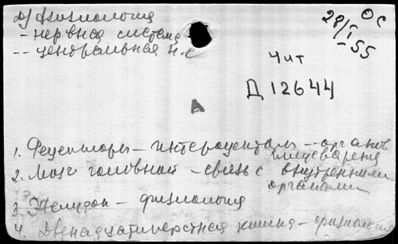 Д) Физиология
- нервная система
-- центральная н.с
28/I-55
ОС
Чит
Д 12644
А
1. Рецепторы - интероцепторы -- органов пищеварения
2. Мозг головной - связь с внутренними органами
3. Желудок - физиология
4. Двенадцатиперстная кишка - физиология